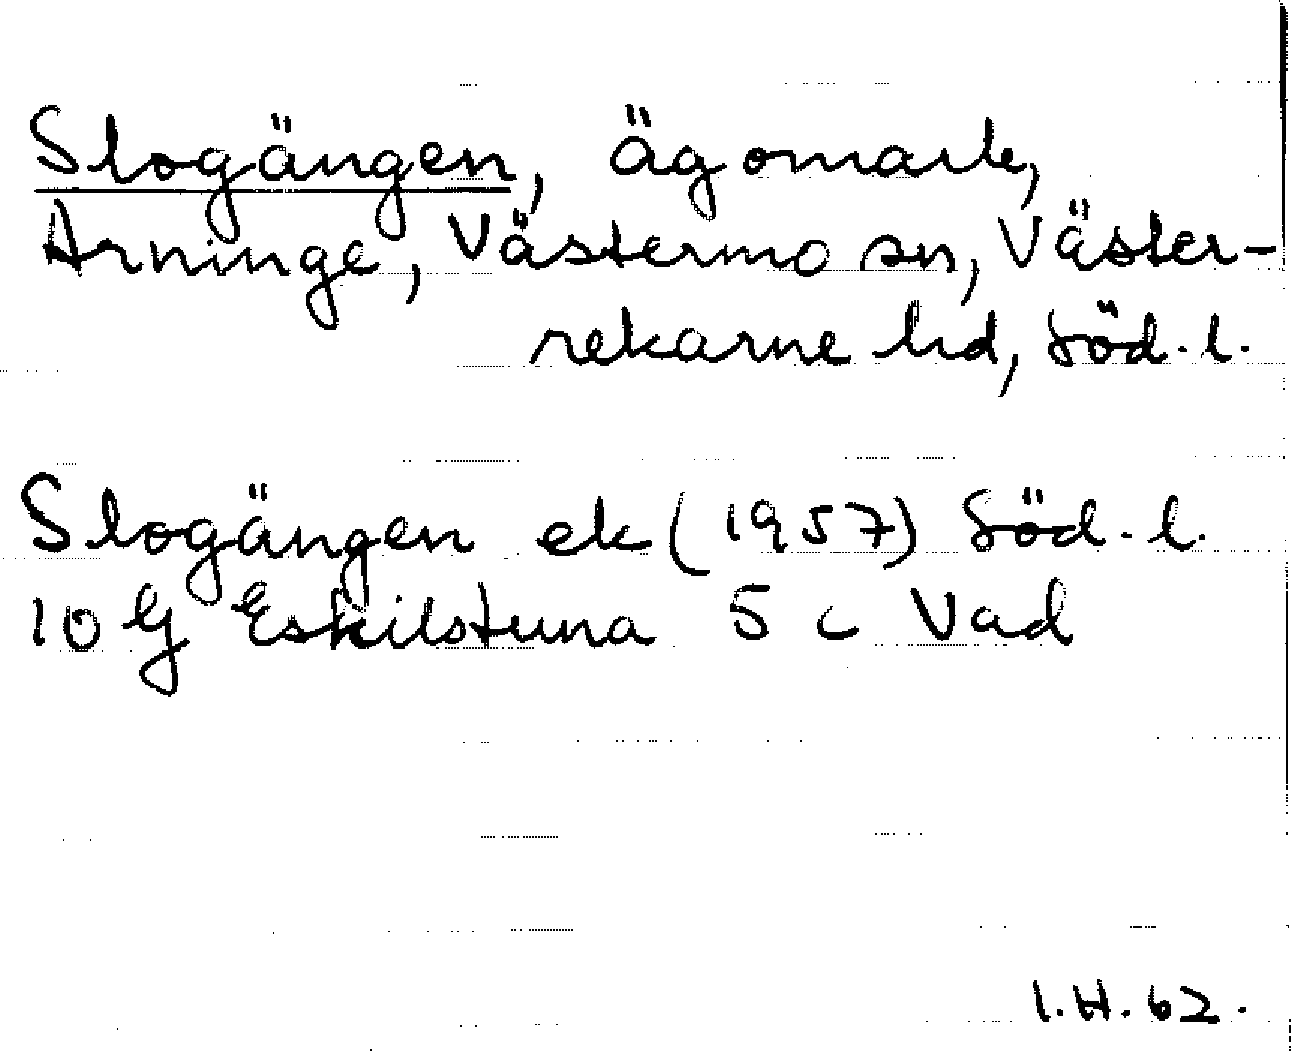 Slogängen, ägomark,
Arninge, Västermo sn, Väster-
rekarne hd, Söd. l.
Slogängen ek (1957) Söd. l.
10 G Eskilstuna 5 c Vad
I.H. 62.